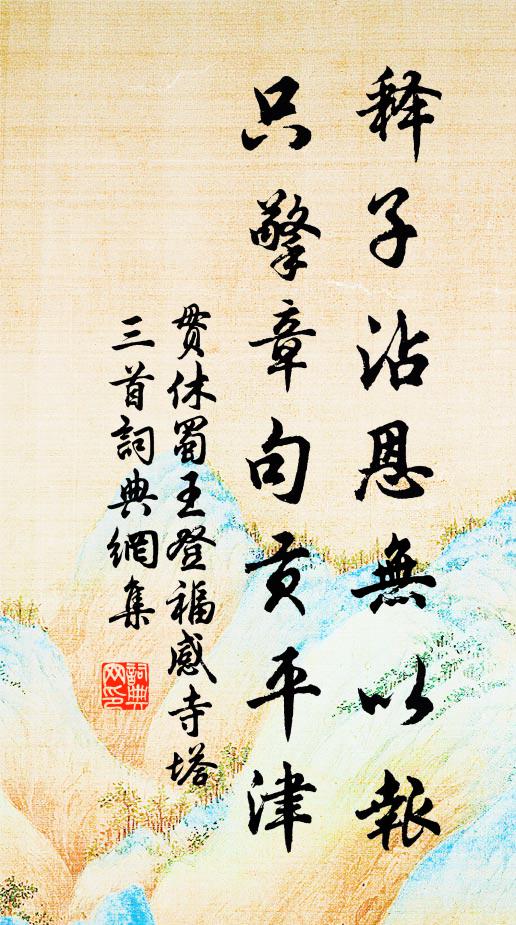 释子沾恩無以報
只擎章句贡平津
贯休蜀王登福感寺塔
三首詞典網集
詞典网印